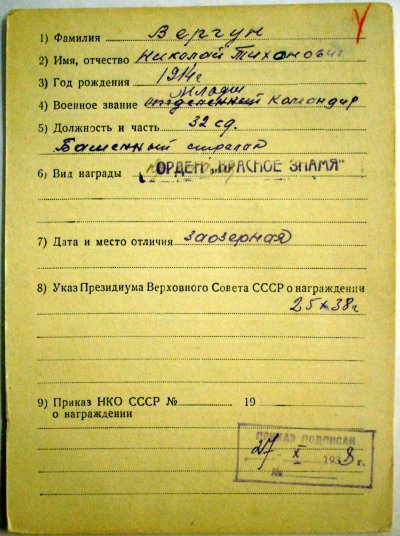 1) Фамилия Вергун
2) Имя, отчество Николай Тиханович
3) Год рождения 1914г
Младш
4) Военное звание Командир
5) Должность и часть 32 сд.
Башенный стрелок
6) Вид награды ОРДЕН „КРАСНОЕ ЗНАМЯ"
7) Дата и место отличия Заозерная
8) Указ Президиума Верховного Совета СССР о награждении
25 X 38г
9) Приказ НКО СССР № 19
о награждении
ПРИКАЗ ПОДПИСАН
27 X 1938 г.
№